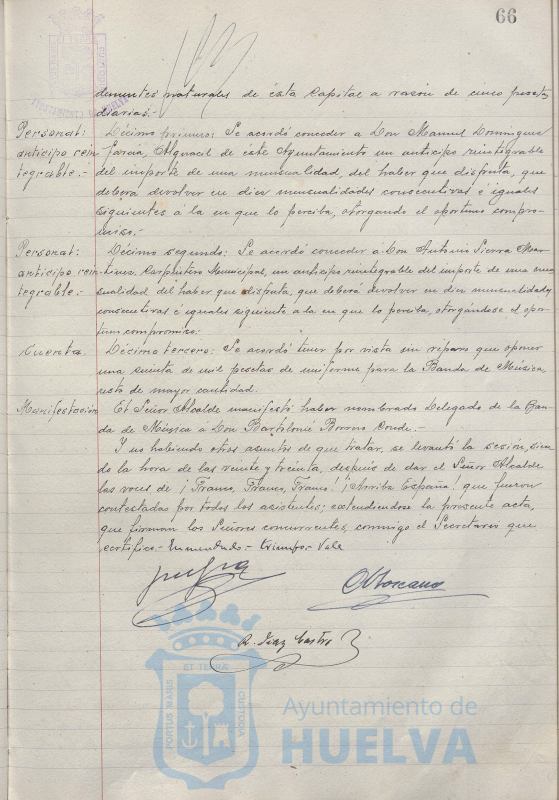 66
dementes naturales de ésta Capital a razón de cinco pesetas
diarias.-
Personal:
anticipo rein
tegrable.-
Décimo primero: Se acordó conceder a Don Manuel Dominguez
García, Alguacil de éste Ayuntamiento un anticipo reintegrable
del importe de una mensualidad, del haber que disfruta, que
deberá devolver en diez mensualidades consecutivas é iguales
siguientes á la en que lo perciba, otorgando el oportuno compro-
miso.-
Personal:
anticipo rein
tegrable.-
Décimo segundo: Se acordó conceder a Don Antonio Sierra Mar-
tinez, Carpintero Municipal, un anticipo reintegrable del importe de una men
sualidad del haber que disfruta, que deberá devolver en diez mensualidades
consecutivas é iguales siguiente a la en que lo perciba, otorgándose el opor-
tuno compromiso.
Cuenta.
Décimo tercero: Se acordó tener por vista sin reparo que oponer
una cuenta de mil pesetas de uniforme para la Banda de Música
resto de mayor cantidad.
Manifestación
El Señor Alcalde manifestó haber nombrado Delegado de la Ban
da de Música a Don Bartolomé Borrero Conde.-
Y no habiendo otros asuntos de que tratar, se levantó la sesión, sien
do la hora de las veinte y treinta, después de dar el Señor Alcalde
las voces de ¡Franco, Franco, Franco! ¡Arriba España! que fueron
contestadas por todos los asistentes; extendiendose la presente acta,
que firman los Señores concurrentes, conmigo el Secretario que
certifico.- Enmendado.- Vale
R. Diaz Castro
ET TERRAE
PORTUS MARIS
CUSTODIA
Ayuntamiento de
HUELVA